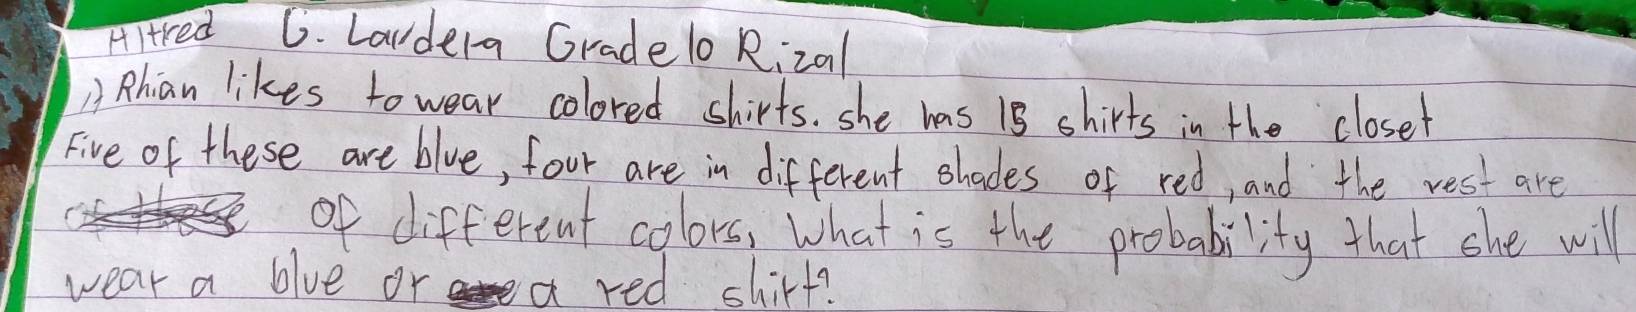 Alfred G. Lavdera Grade 10 Rizal
1) Rhian likes to wear colored shirts. she has 15 shirts in the closet
Five of these are blue, four are in different shades of red, and the rest are
of different colors, What is the probability that she will
wear a blue or a red shirt?